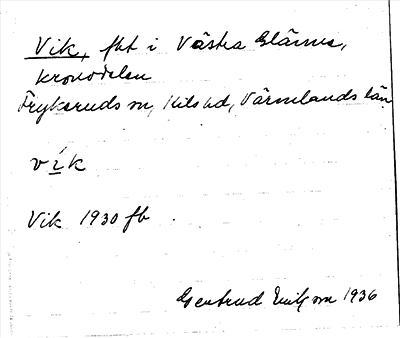 Vik, fht i Västra Glänne,
kronodelen
Frykeruds sn, Kils hd, Värmlands län
vi̱ ́k
Vik 1930 fb
Gertrud Eriksson 1936